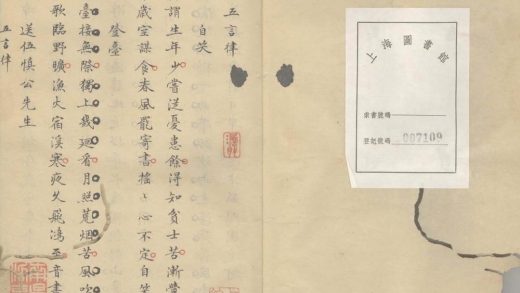 上海圖書館
索書號碼
登記號碼 007109
五言律
自笑
謂生年少嘗從憂患餘得知貧士苦漸
歲室謀食春風罷寄書搖々心不定自笑
登臺
臺接無際獨上幾廻看月照荒烟苦風吹
歌臨野曠漁火宿溪寒夜久飛鴻至音書
送伍慎公先生
五言律